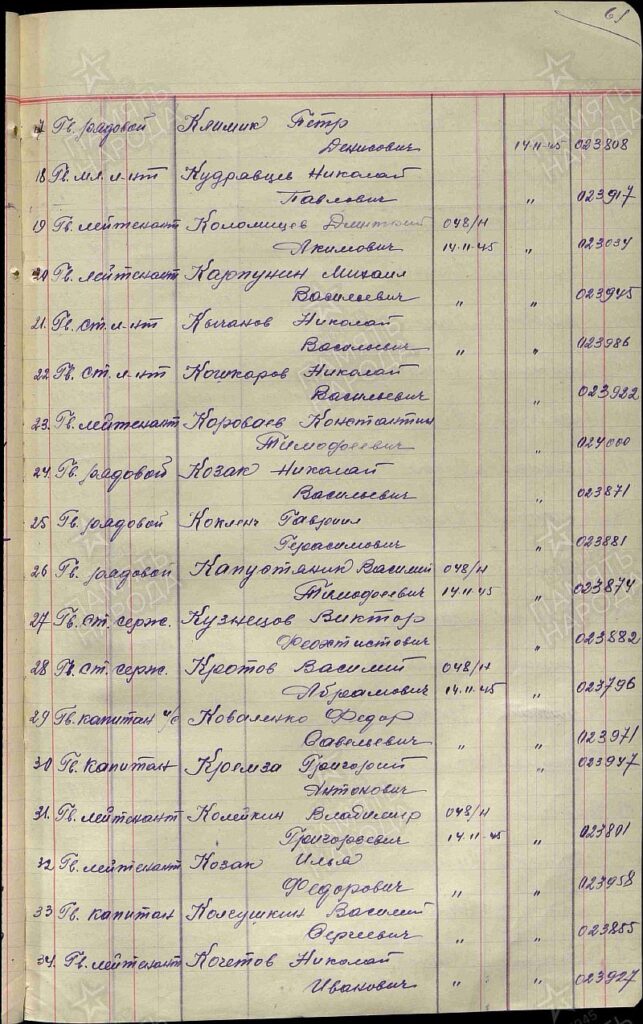 61
17 Гв. рядовой Климик Петр
Денисович 14.11.45 023808
18 Гв. мл. л-нт Кудравцев Николай
Павлович " 023917
19 Гв. лейтенант Коломицев Дмитрий 048/н
Якимович 14.11.45 " 023034
20 Гв. лейтенант Карпунин Михаил
Васильевич " " 023945
21. Гв. ст. л-нт Кычанов Николай
Васильевич " " 023986
22 Гв. ст. л-нт Кошкаров Николай
Васильевич " 023922
23. Гв. лейтенант Короваев Константин
Тимофеевич " 024000
24. Гв. рядовой Козак Николай
Васильевич " 023871
25 Гв. рядовой Кокленч Гавриил
Герасимович " 023881
26 Гв. рядовой Капустяник Василий 048/н
Тимофеевич 14.11.45 " 023874
27 Гв. ст. серж. Кузнецов Виктор
Феохтистович " 023882
28 Гв. ст. серж. Кротов Василий 048/н
Абрамович 14.11.45 " 023796
29 Гв. капитан Коваленко Федор
Савельевич " " 023971
30 Гв. капитан Кремза Григорий " 023947
Антонович
31. Гв. лейтенант Колейкин Владимир 048/н
Григорьевич 14.11.45 " 023801
32 Гв. лейтенант Козак Илья
Федорович " " 023958
33 Гв. капитан Клеушкин Василий
Сергеевич " " 023855
34. Гв. лейтенант Кочетов Николай
Иванович " " 023927
ПАМЯТЬ
НАРОДА